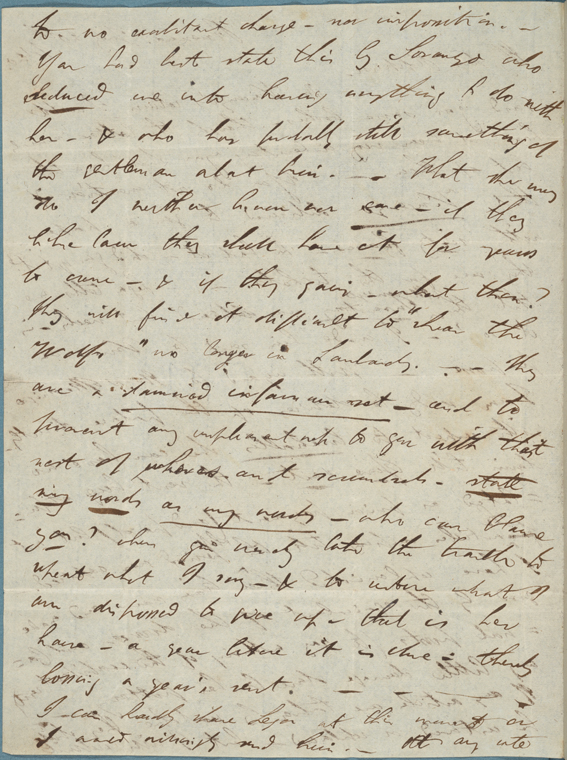 to no exorbitant charge - nor imposition. -
You had best state this by Soranzo who
seduced me into having anything to do with
her - & who has probably still something of
the gentleman about him. - - What she may
do I neither know nor care - if they
like law they shall have it for years
to come - & if they gain - what then?
they will find it difficult to "shear the
Wolf" no longer in Lombardy. - - they
are a damned infamous set - and to
prevent any unpleasantness to you with that
nest of whores and scoundrels - state
my words as my words - who can blame
you? when you merely take the trouble to
repeat what I say - & to restore what I
am disposed to give up - that is her
house - a year before it is due - thereby
losing a year's rent. - - -
I can hardly spare Lega at this moment or
I would willingly send him. - At any rate